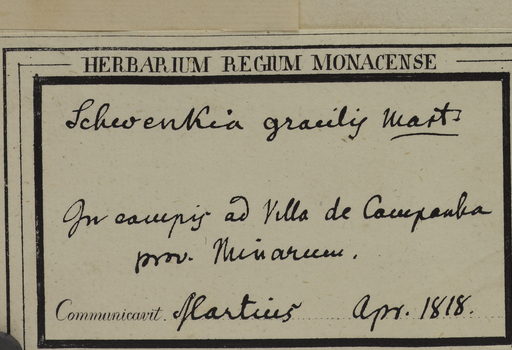 HERBARIUM REGIUM MONACENSE
Schwenkia gracilis Mart.
In campis ad Villa de Campanha
prov. Minarum.
Communicavit Martius Apr. 1818.